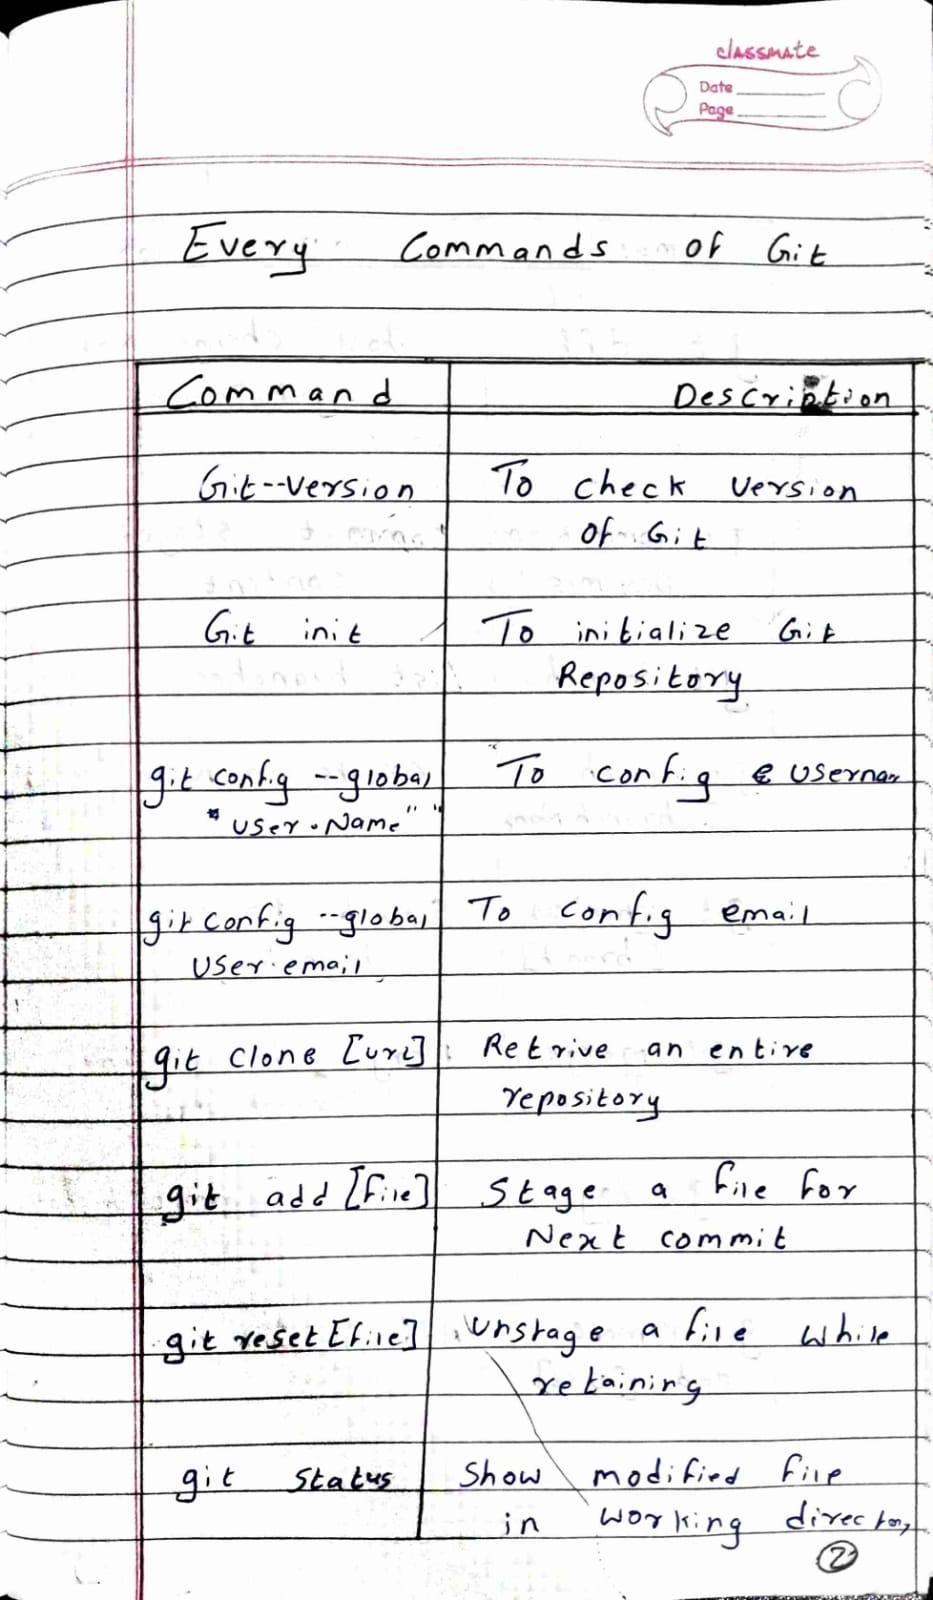 classmate
Date
Page
Every Commands of Git
Command Description
Git--version To check version
of Git
Git init To initialize Git
Repository
git config --global To config Userna
"user.Name" " "
git config --global To config email
user.email
git clone [url] Retrive an entire
repository
git add [file] Stage a file for
Next commit
git reset [file] Unstage a file while
retaining
git status Show modified file
in working director,
2